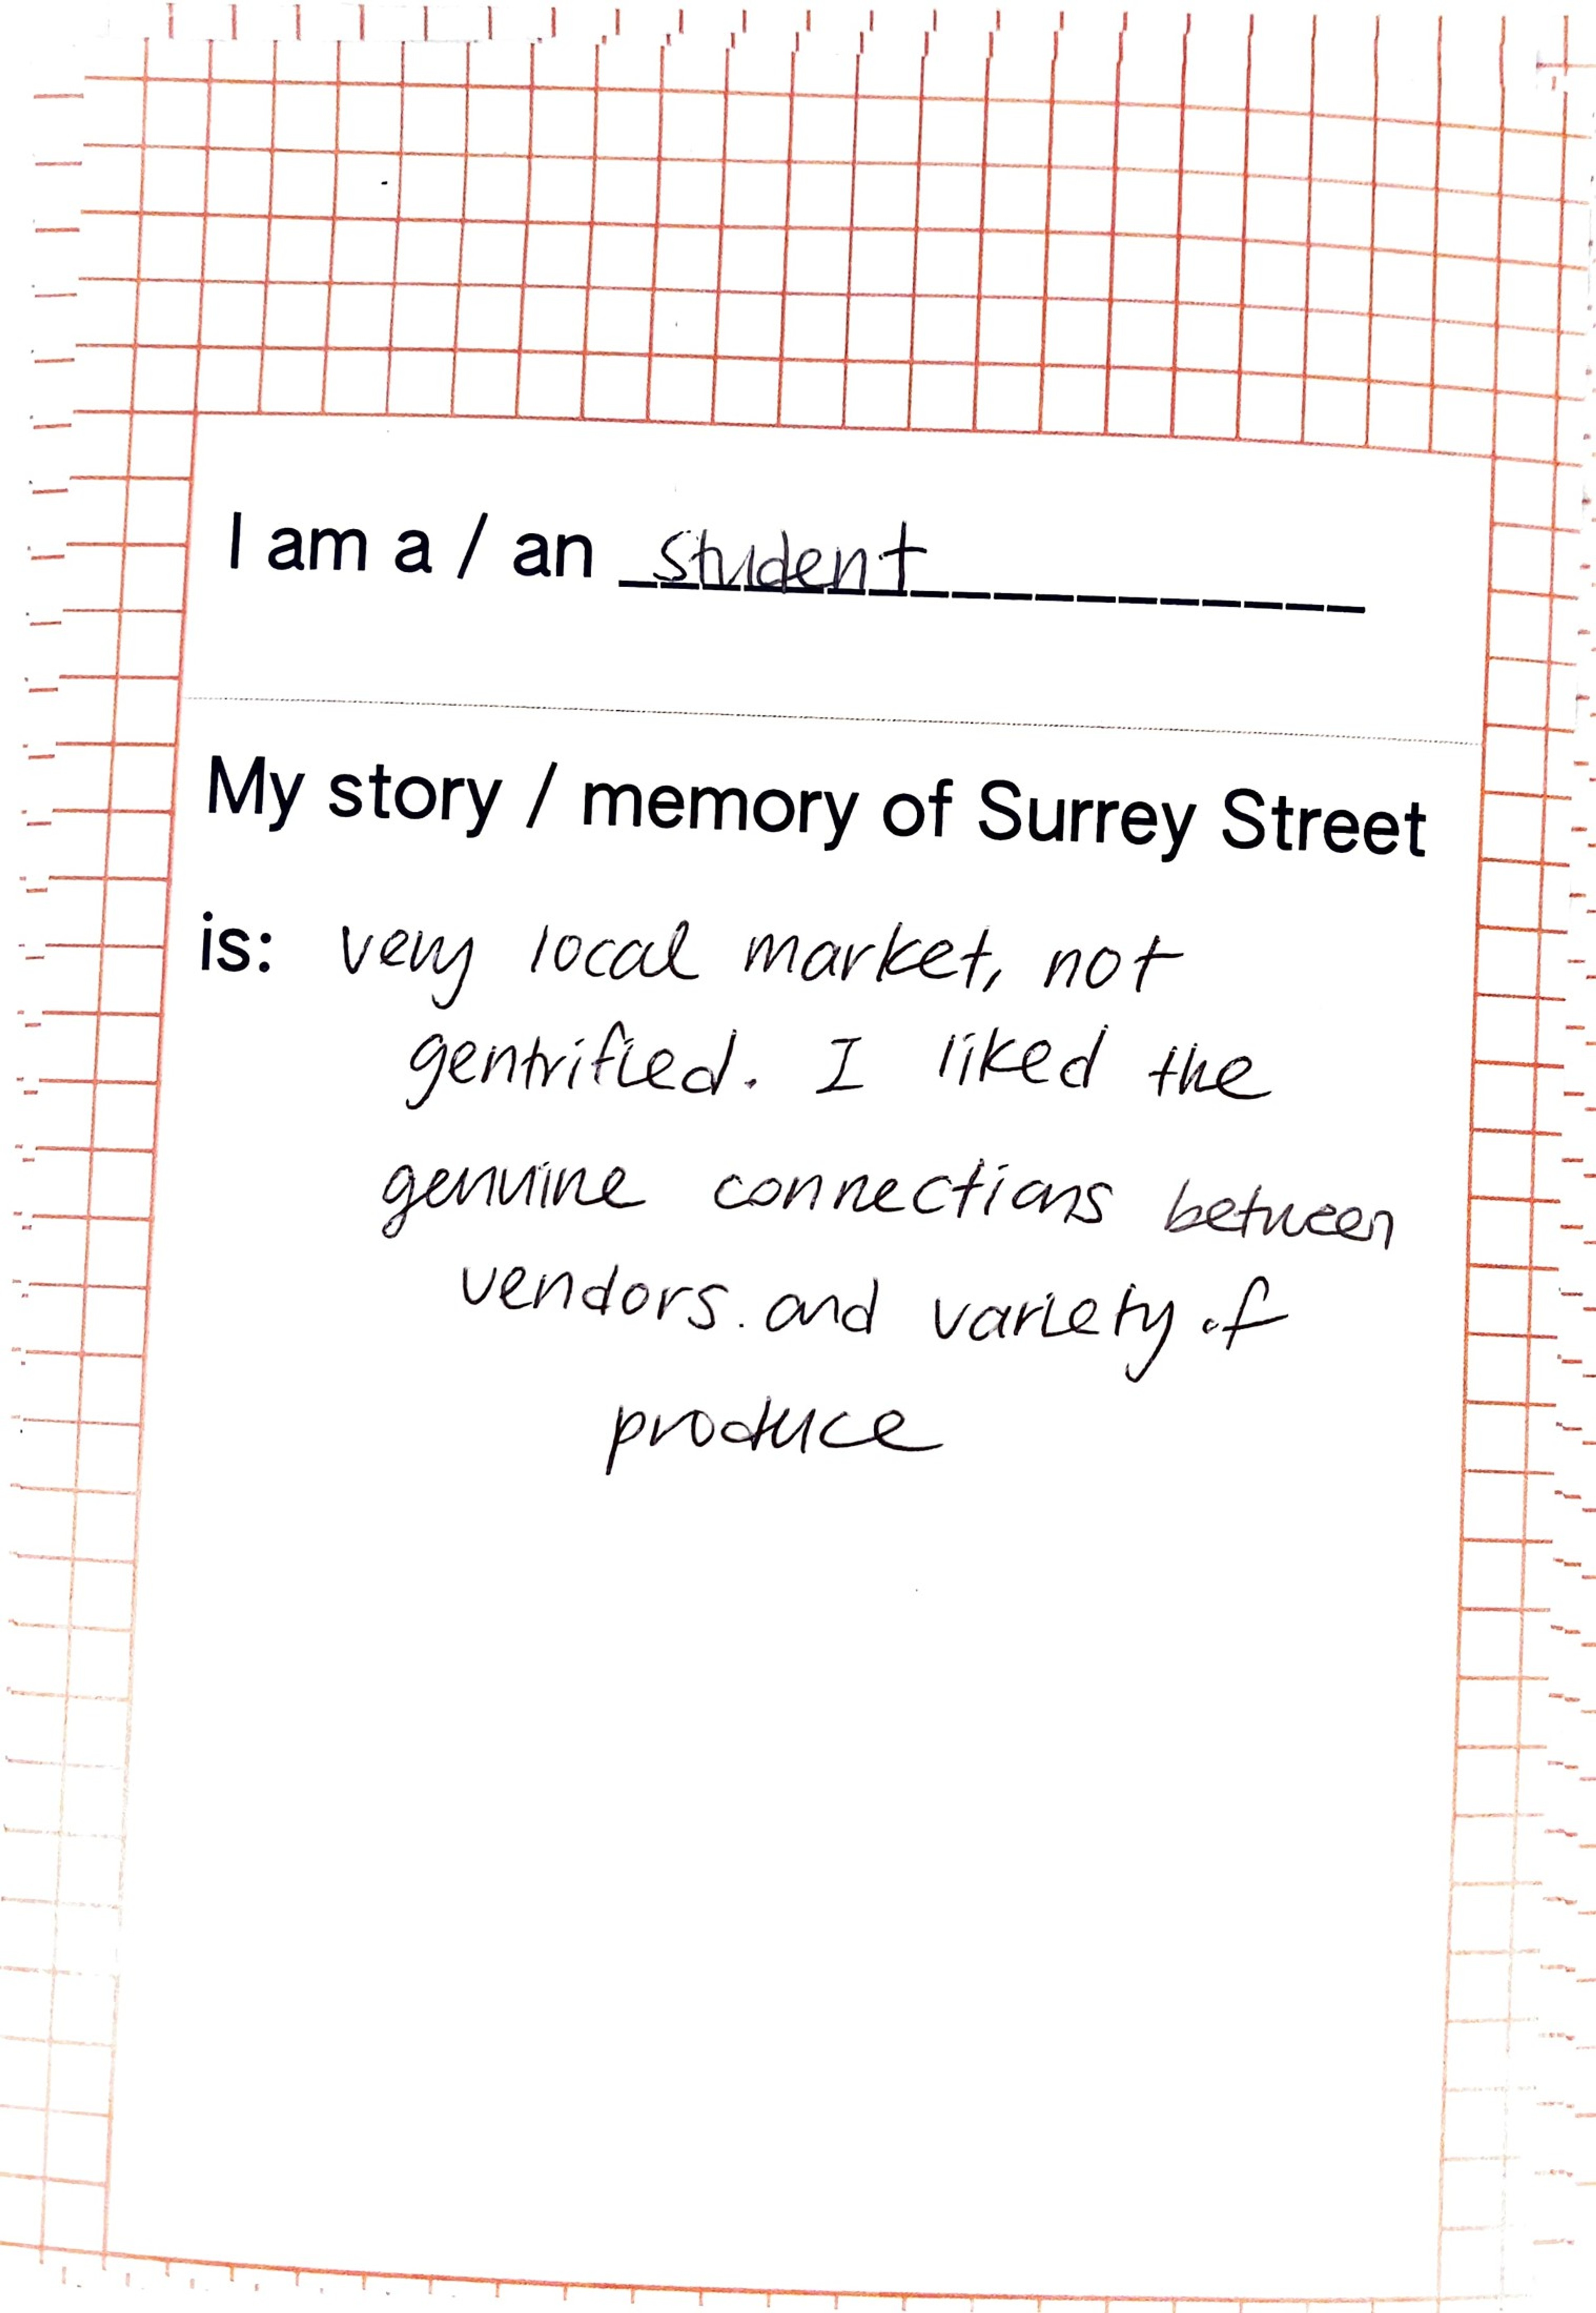 I am a / an student
My story / memory of Surrey Street
is: very local market, not
gentrified. I liked the
genuine connections between
vendors. and variety of
produce